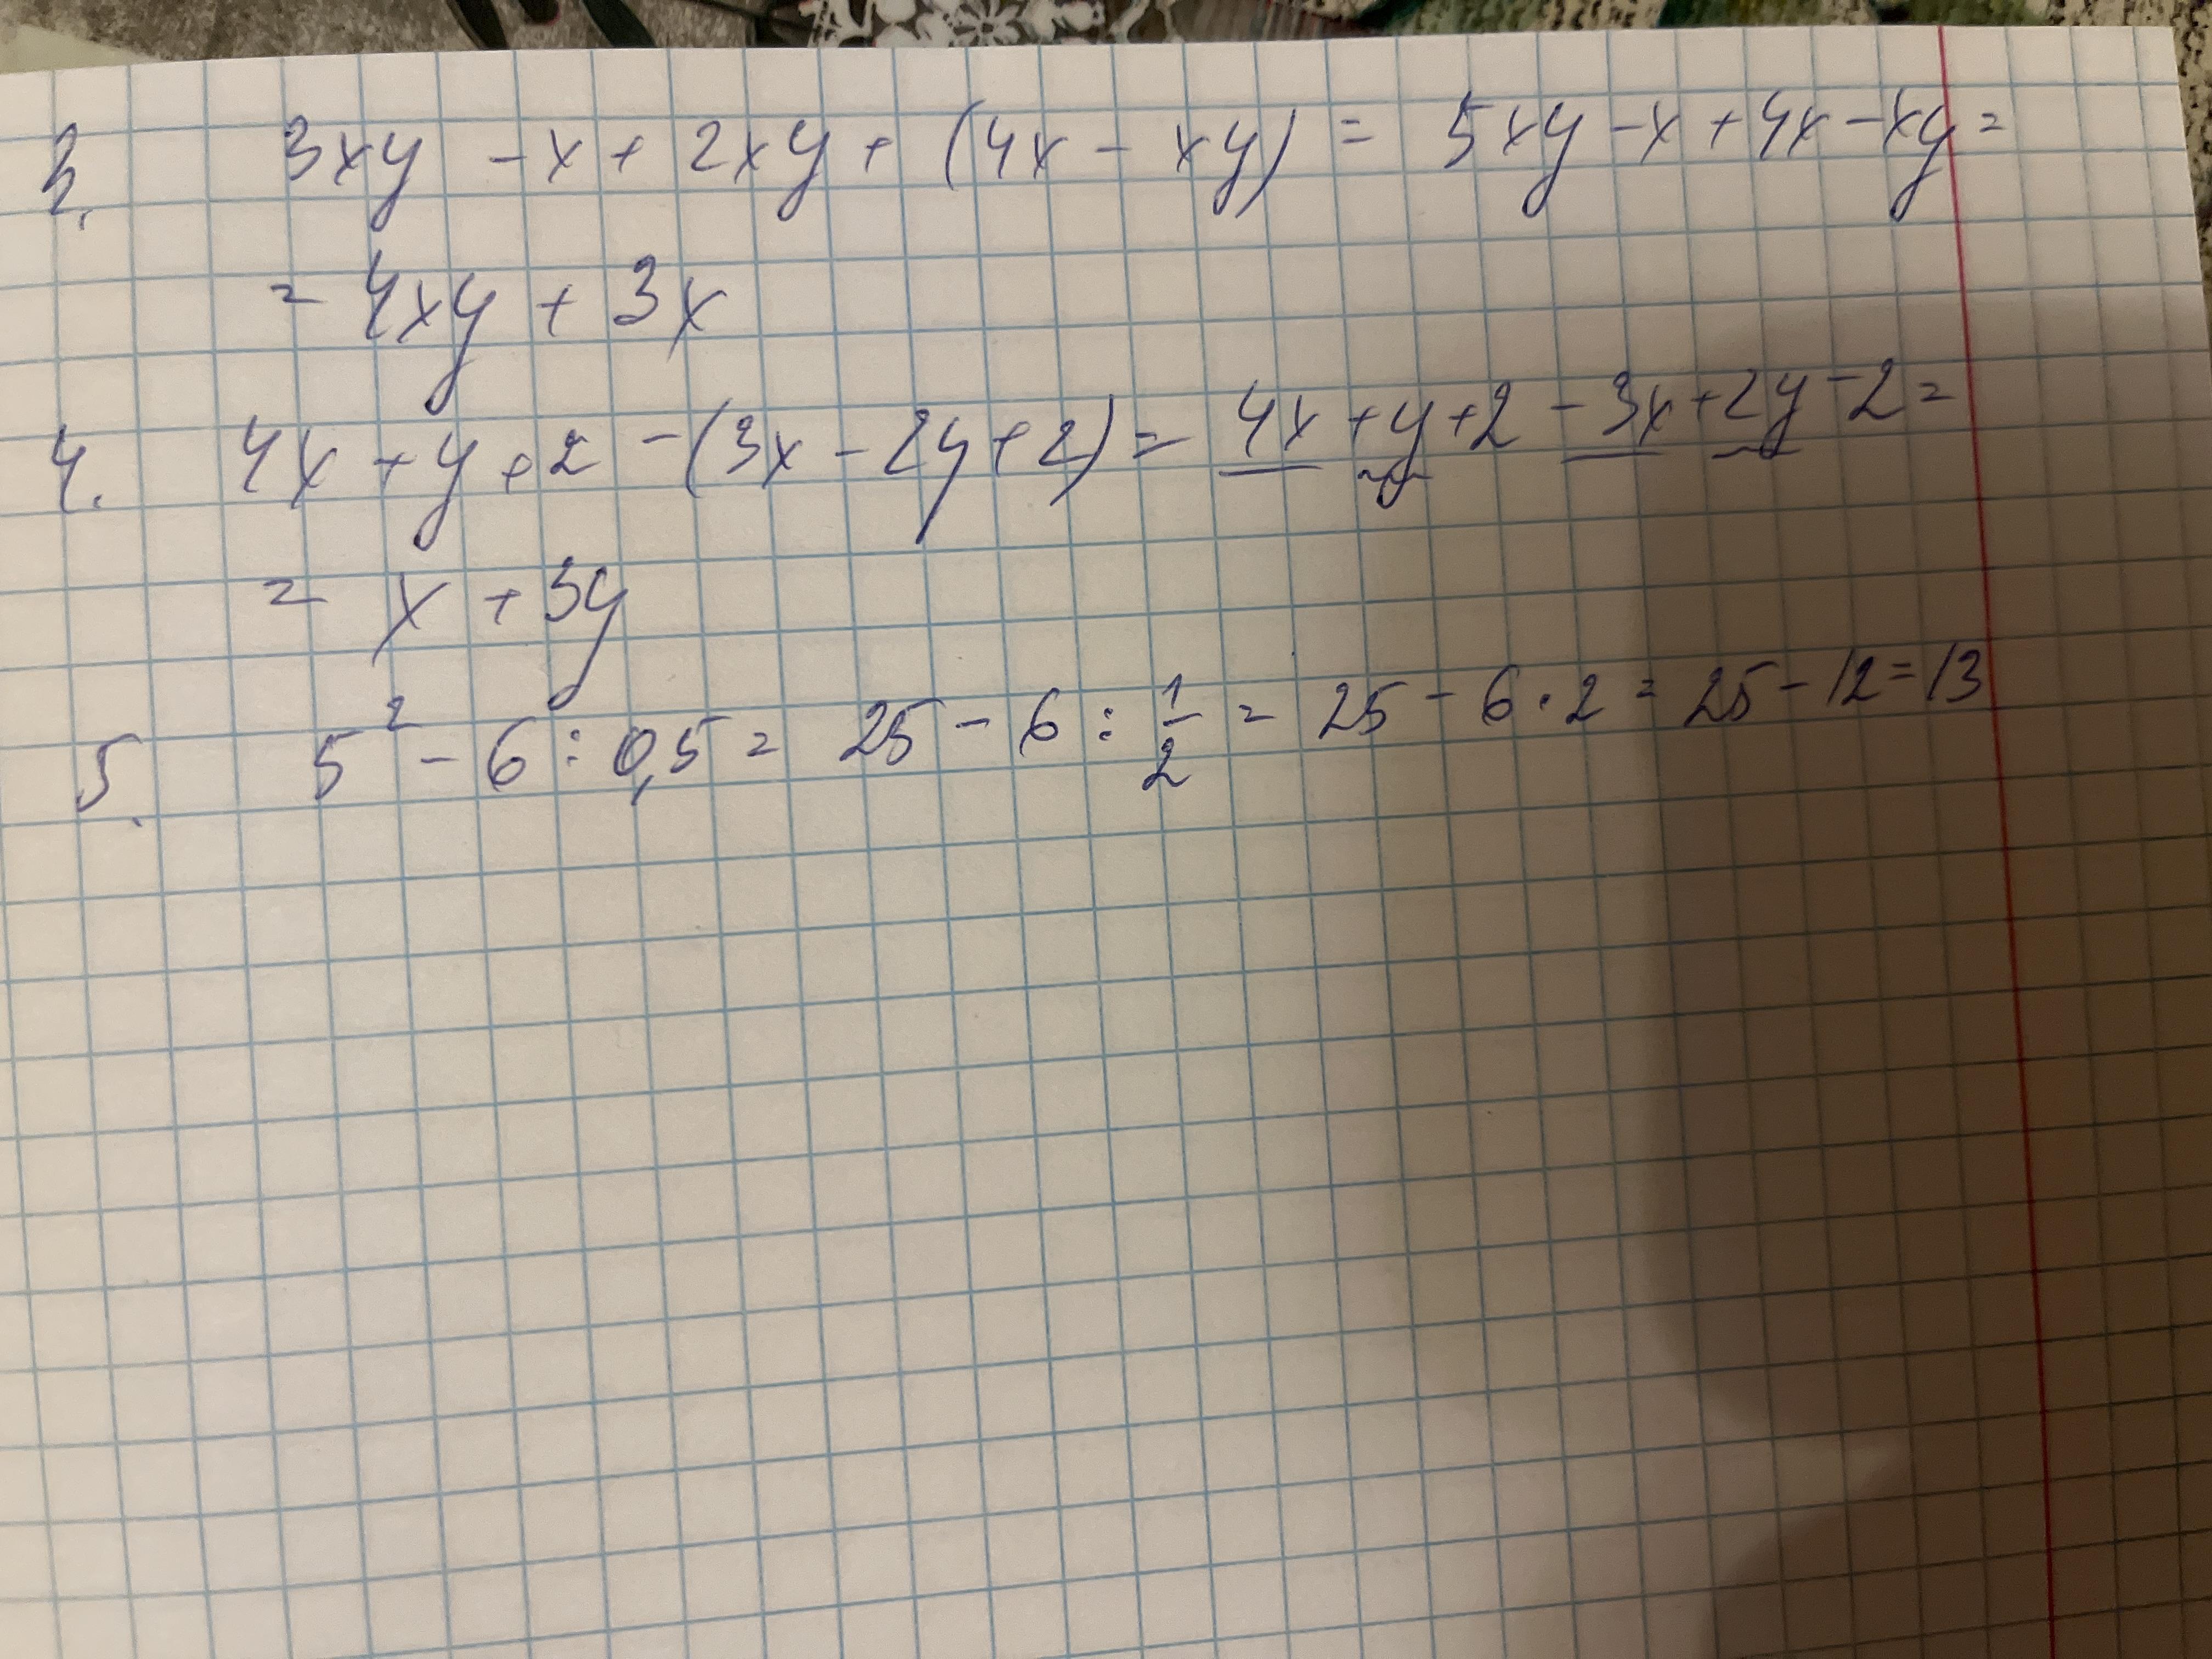 3. 3xy - x + 2xy + (4x - xy) = 5xy - x + 4x - xy =
= 4xy + 3x
4. 4x + y + 2 - (3x - 2y + 2) = 4x + y + 2 - 3x + 2y - 2 =
= x + 3y
5. 5² - 6 : 0,5 = 25 - 6 : 1/2 = 25 - 6 · 2 = 25 - 12 = 13